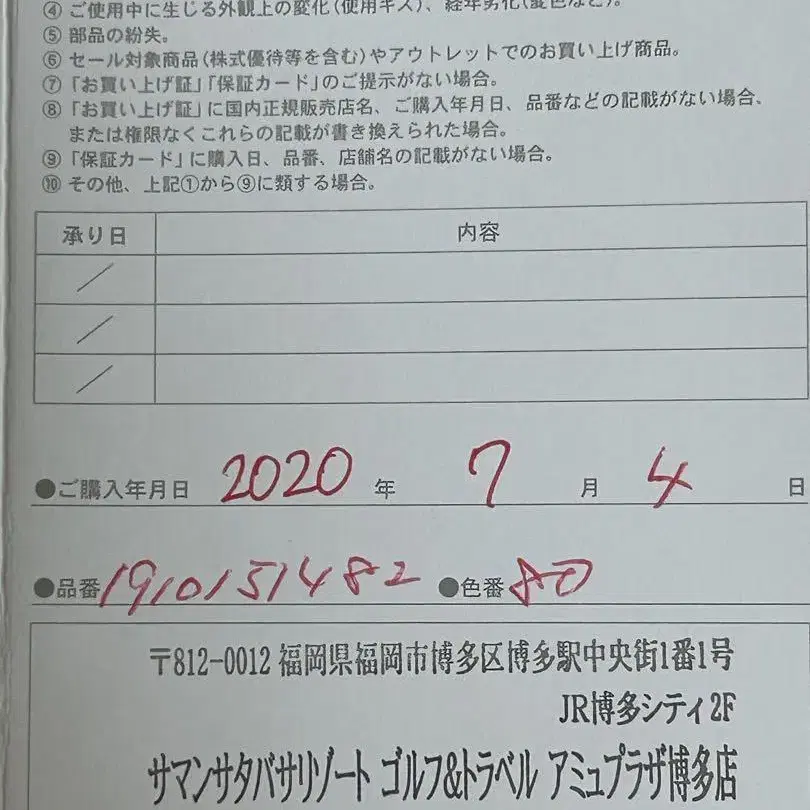 ④ ご使用中に生じる外観上の変化(使用キズ)、経年劣化(変色など)。
⑤ 部品の紛失。
⑥ セール対象商品(株式優待等を含む)やアウトレットでのお買い上げ商品。
⑦「お買い上げ証」「保証カード」のご提示がない場合。
⑧「お買い上げ証」に国内正規販売店名、ご購入年月日、品番などの記載がない場合、
または権限なくこれらの記載が書き換えられた場合。
⑨「保証カード」に購入日、品番、店舗名の記載がない場合。
⑩ その他、上記①から⑨に類する場合。
承り日 内容
／
／
／
●ご購入年月日 2020 年 7 月 4 日
●品番 1910151482 ●色番 80
〒812-0012 福岡県福岡市博多区博多駅中央街1番1号
JR博多シティ2F
サマンサタバサリゾート ゴルフ&トラベル アミュプラザ博多店